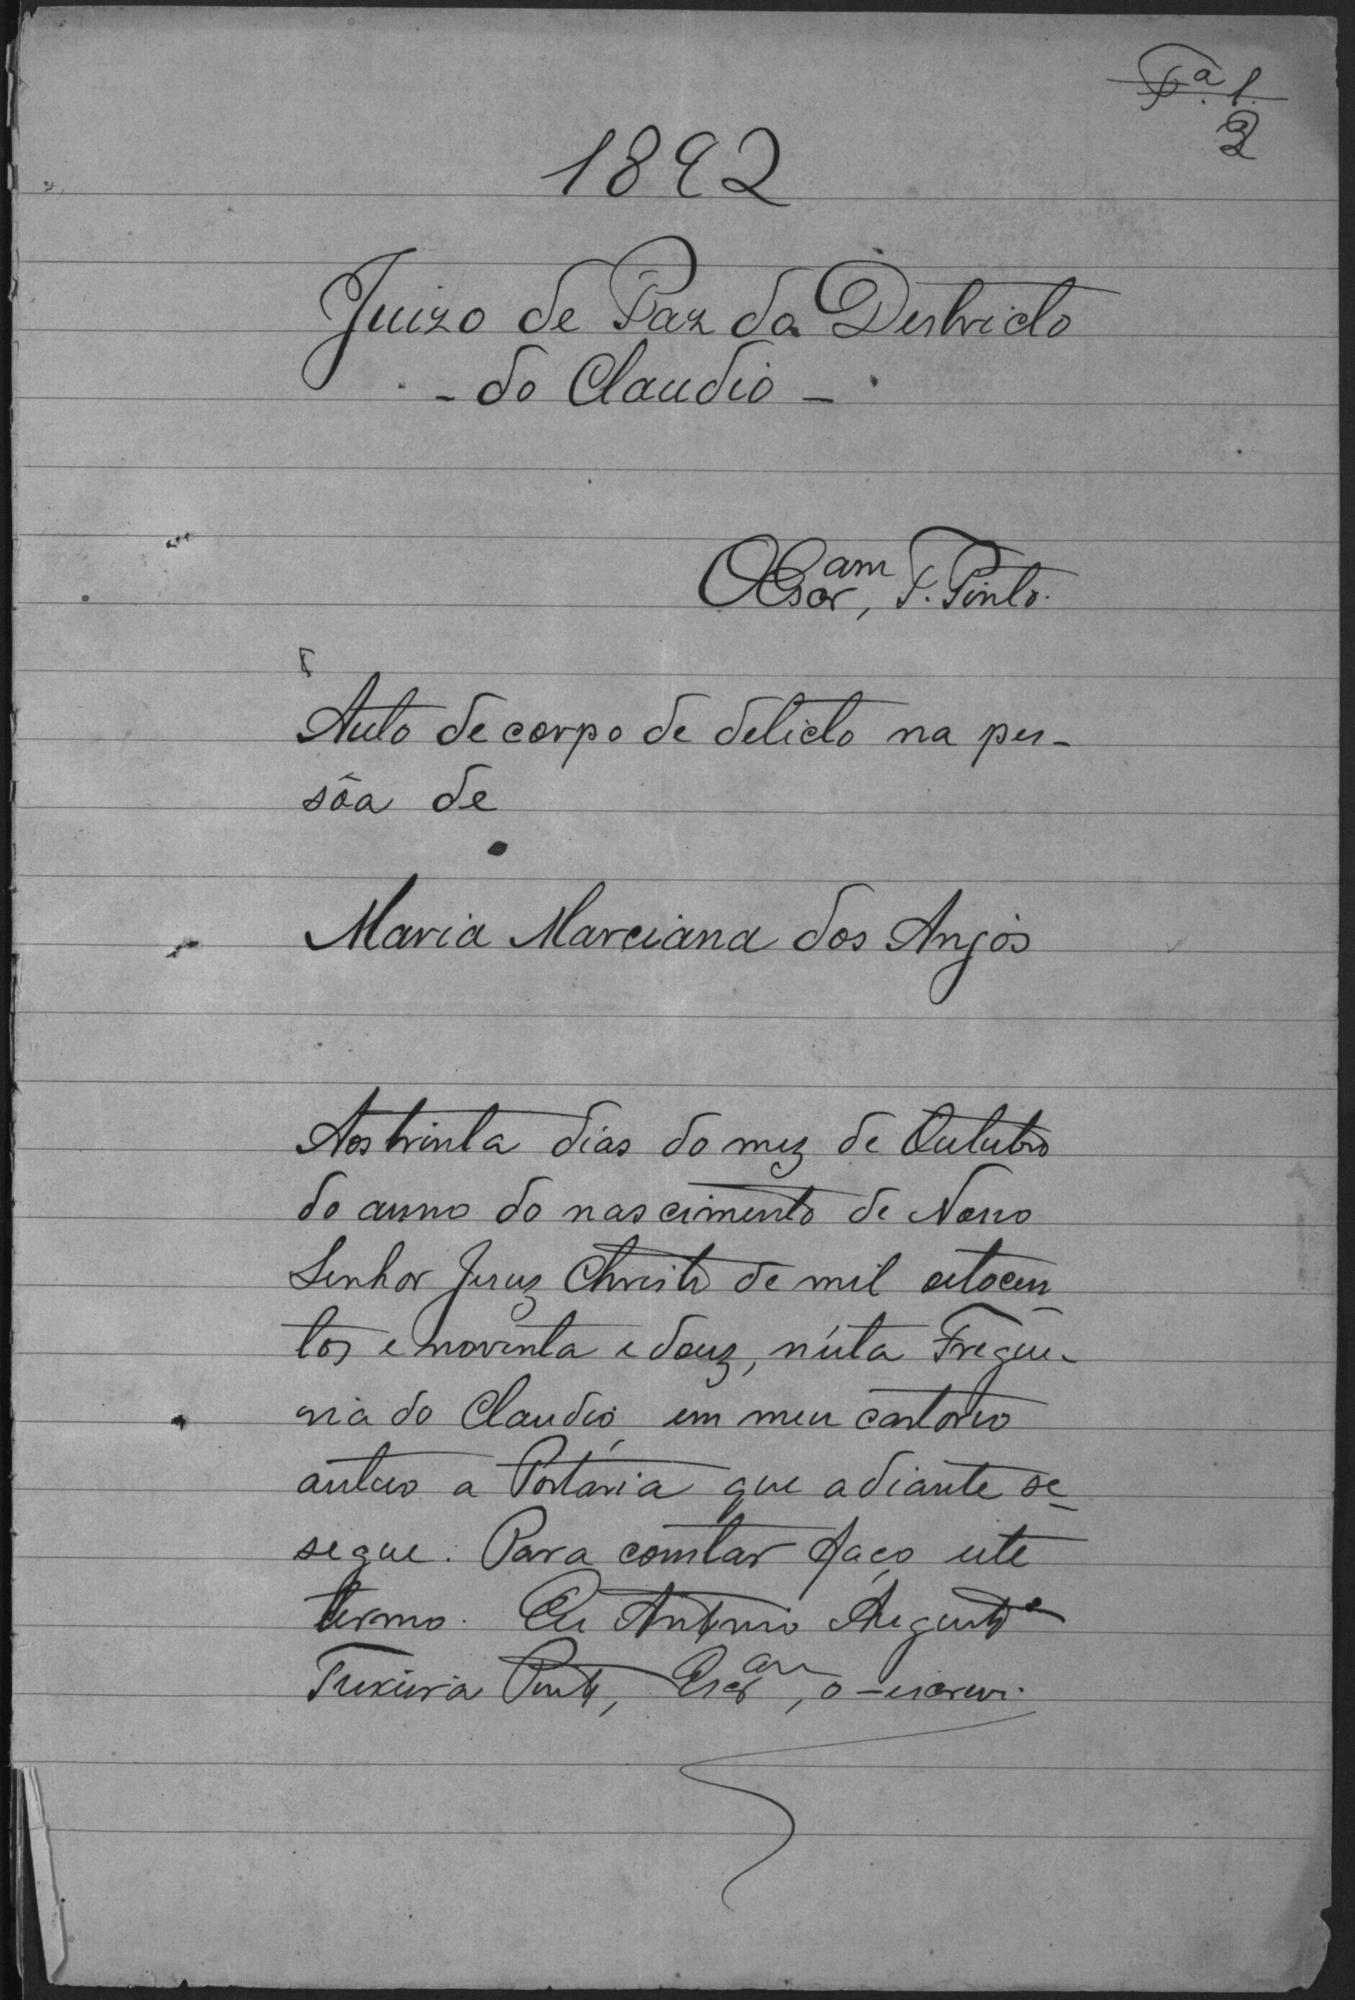 Fª. 1.
2
1892
Juizo de Paz do Districto
- do Claudio -
O Escram, T. Pinto.
Auto de corpo de delicto na pes-
sôa de
Maria Marciana dos Anjos
Aos trinta dias do mez de Outubro
do anno do nascimento de Nosso
Senhor Jesuz Christo de mil oitocen
tos e noventa e douz, n'esta Fregue-
sia do Claudio, em meu cartorio
autuo a Portaria que adiante se-
segue. Para constar faço este
termo. Eu Antonio Augusto
Teixeira Pinto, Escram, o-escrevi.